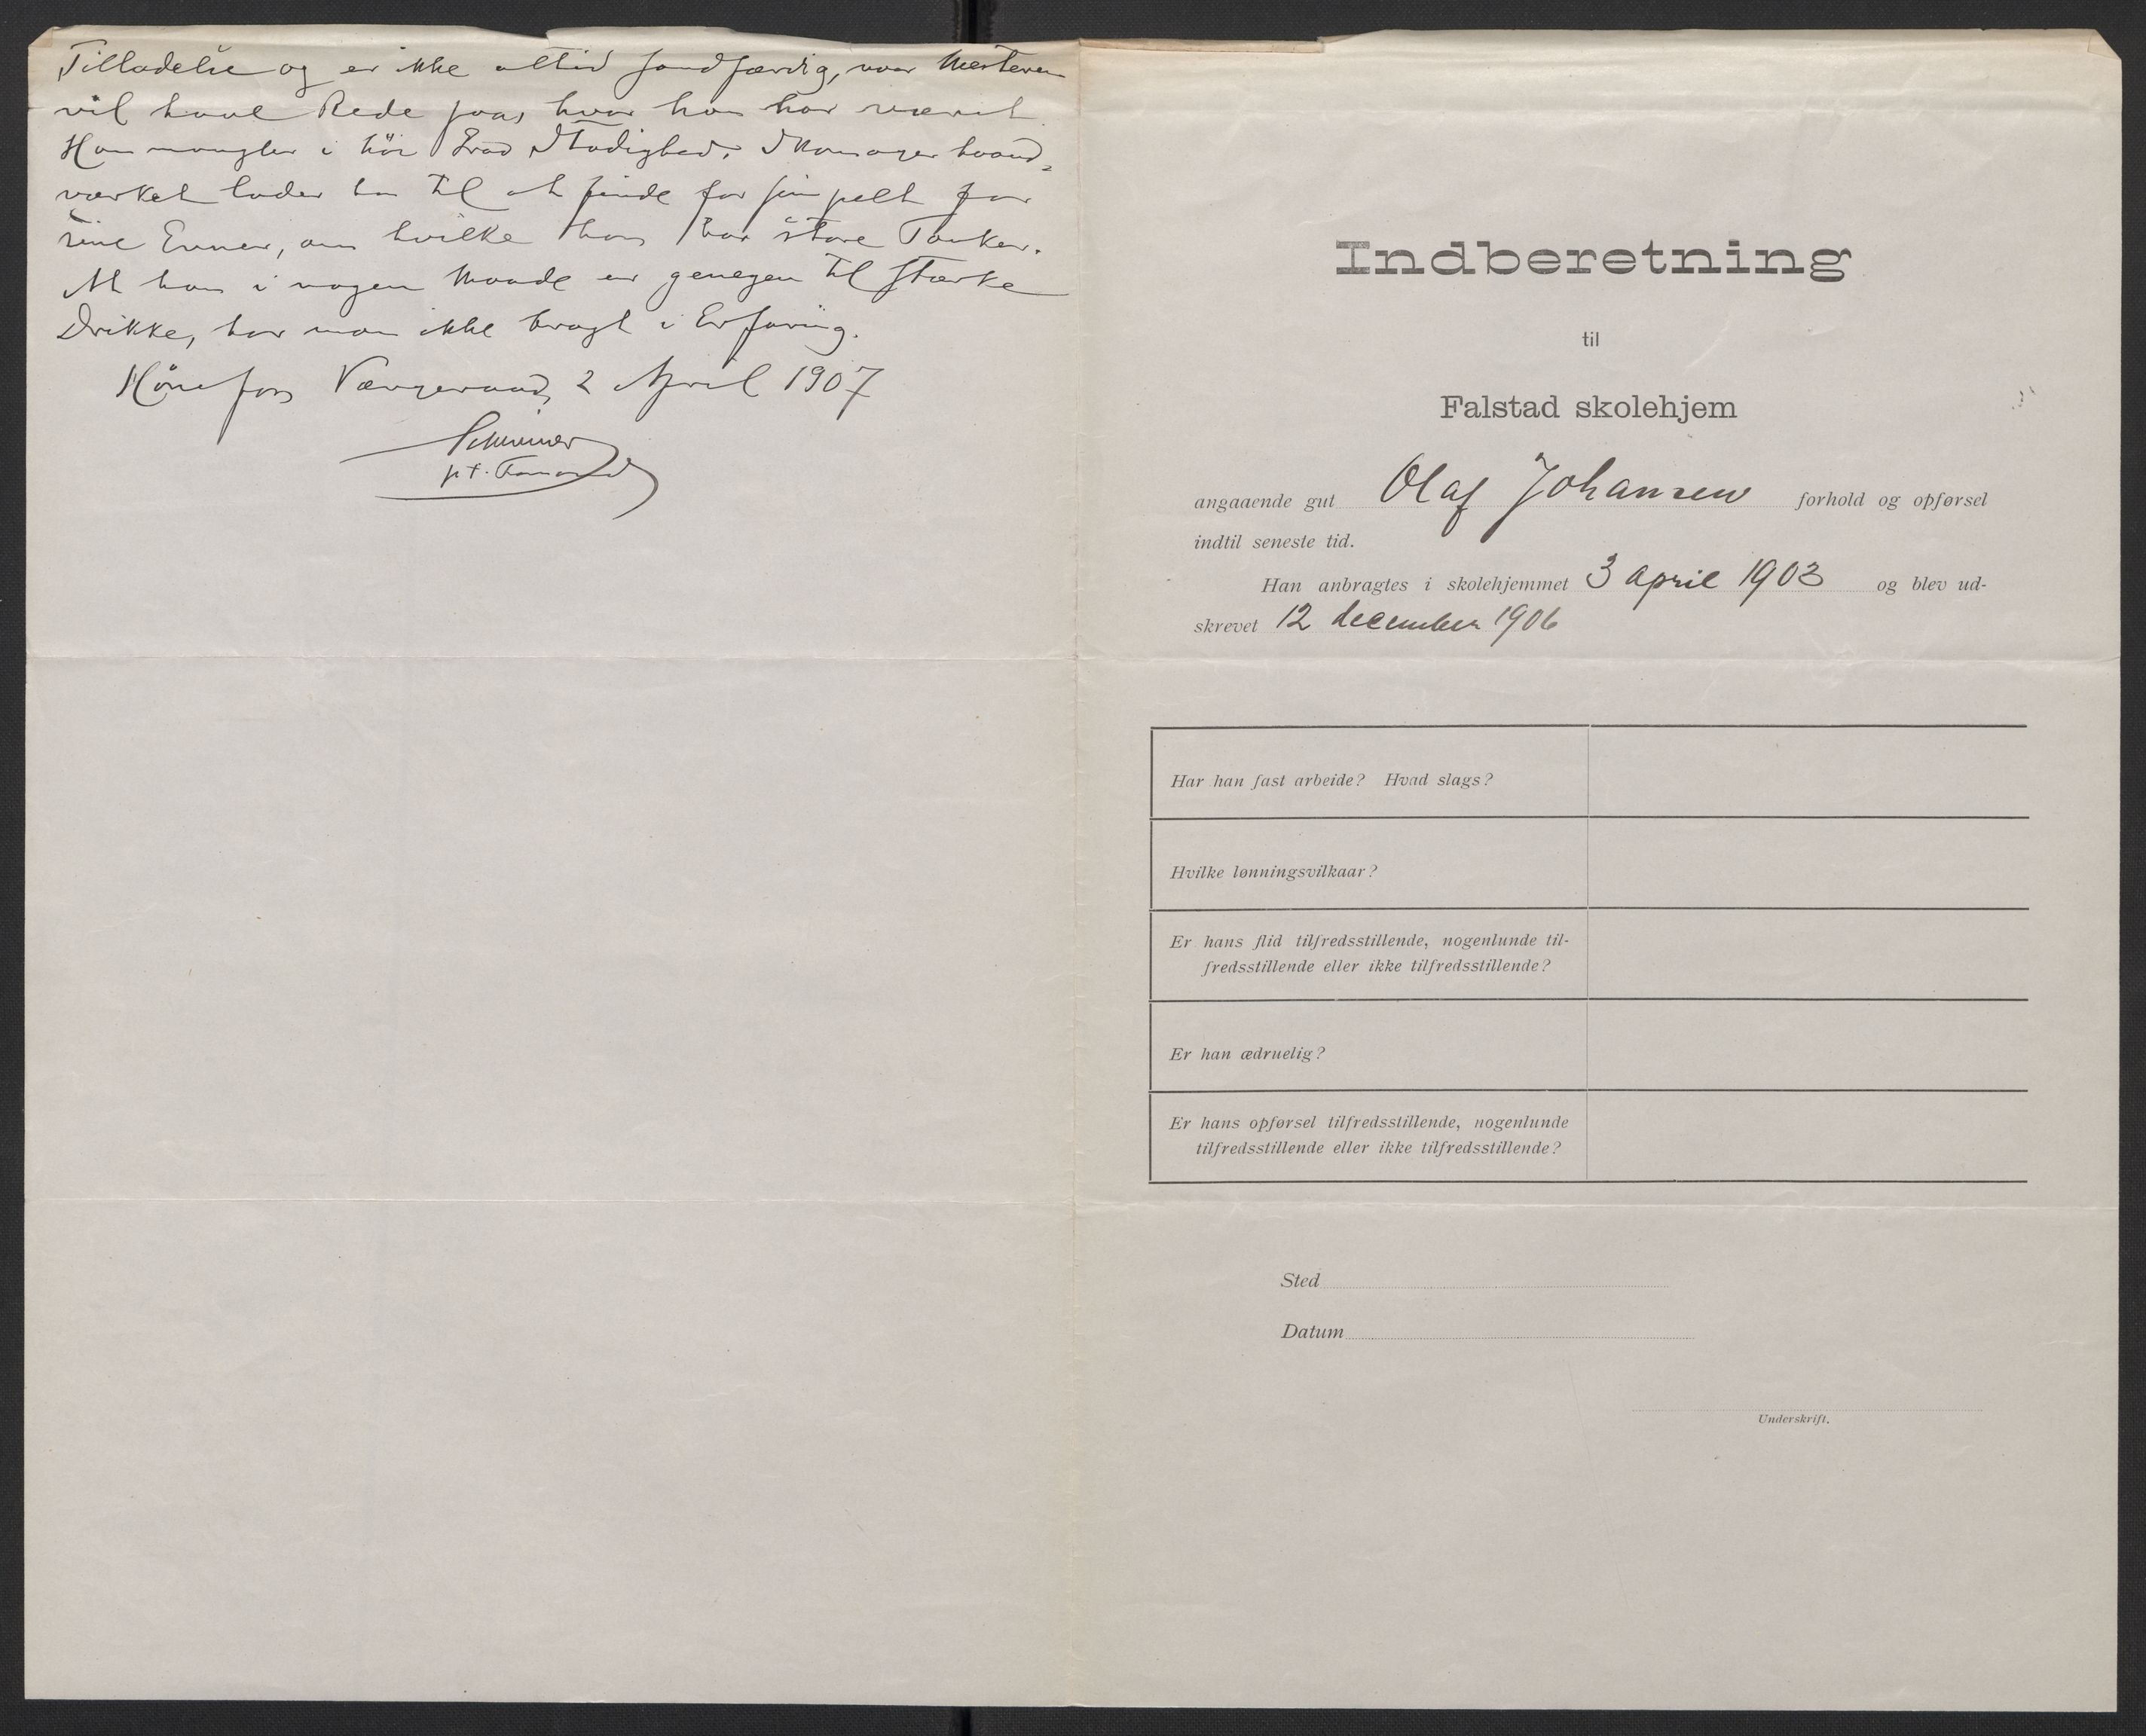 Tilladelse og er ikke altid sandfærdig, naar Mesteren
vil have Rede paa, hvor han har været.
Han mangler i høi Grad Stadighed. Skomagerhaand-
værket lader han til at finde for simpelt for
sine Evner, om hvilke han har store Tanker.
At han i nogen Maade er genegen til stærke
Drikke, har man ikke bragt i Erfaring.
Hönefos Værgeraad, 2 April 1907
p.t. Formand
Indberetning
til
Falstad skolehjem
angaaende gut Olaf Johansen forhold og opførsel
indtil seneste tid.
Han anbragtes i skolehjemmet 3 april 1903 og blev ud-
skrevet 12 december 1906
Har han fast arbeide? Hvad slags?
Hvilke lønningsvilkaar?
Er hans flid tilfredsstillende, nogenlunde til-
fredsstillende eller ikke tilfredsstillende?
Er han ædruelig?
Er hans opførsel tilfredsstillende, nogenlunde
tilfredsstillende eller ikke tilfredsstillende?
Sted
Datum
Underskrift.